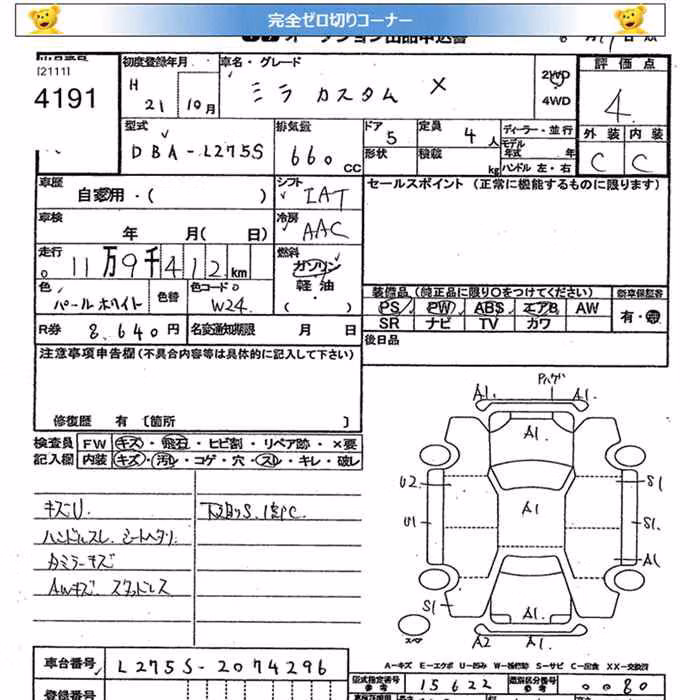 完全ゼロ切りコーナー
オークション出品申込書
[2111]
4191
初度登録年月
H 21 年 10月
車名・グレード
ミラ カスタム X
2WD
4WD
評価点
4
外装 内装
C C
型式
DBA-L275S
排気量
660 CC
ドア 5
形状
定員 4 人
積載 kg
ディーラー・並行
モデル年式 年
ハンドル 左・右
車歴
自家用・( )
シフト
IAT
セールスポイント (正常に機能するものに限ります)
車検
年 月( 日)
冷房
AAC
走行
11万9千412 km
燃料
ガソリン
軽油
( )
色
パールホワイト
色替
色コードO
W24
装備品 (純正品に限り○をつけてください)
PS PW ABS エアB AW
SR ナビ TV カワ
新車保証書
有・無
R券 8,640円
名変通知期限 月 日
後日品
注意事項申告欄 (不具合内容等は具体的に記入して下さい)
修復歴 有 〔箇所 〕
検査員 FW キズ・飛石・ヒビ割・リペア跡・×要
記入欄 内装 キズ・汚レ・コゲ・穴・スレ・キレ・破レ
キズU.
ハンドルスレ. シートヘタリ.
カミラーキズ
AWキズ スタッドレス
下廻りS.
Pハゲ
A1. A1.
A1.
U2 S1
A1
U1 S1.
A1
S1 A1.
スペア
A2 A1.
A-キズ E-エクボ U-凹み W-補修跡 S-サビ C-腐食 XX-交換済
車台番号 L275S-2074296
型式指定番号 15622
類別区分番号 0080
参考
登録番号